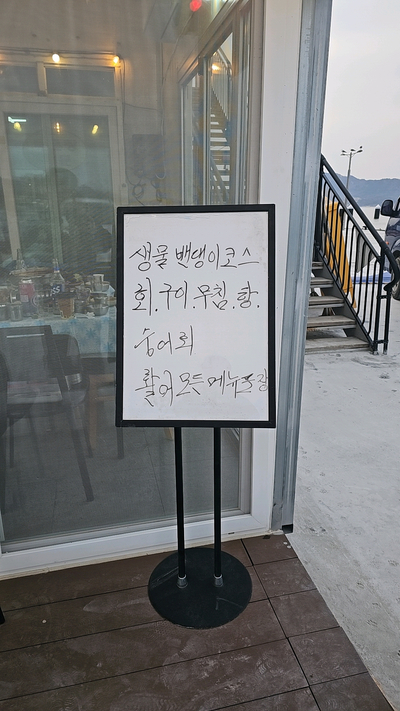 생물 밴댕이코스
회.구이.무침.탕.
숭어회
활어 모든 메뉴포장